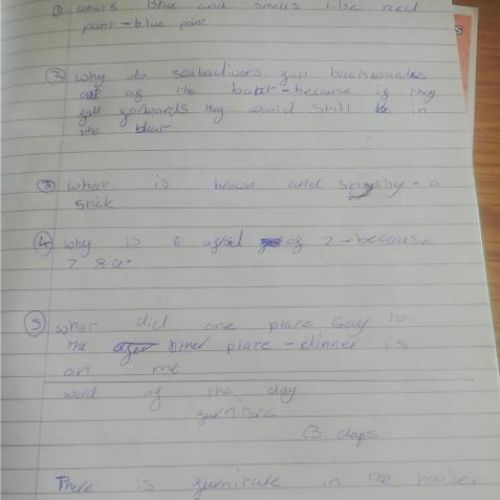 ① whats Blue and smells like red
paint - blue paint
② why do scubadivers fall backwards
out of the boat - because if they
fall forwards they would still be in
the boat
③ what is brown and - a
stick
④ why is 6 afraid of 7 - because
7 8 a.
⑤ what did one plate say to
the other plate - dinner is
on me
word of the day
furniture
3 claps
There is furniture in the house.